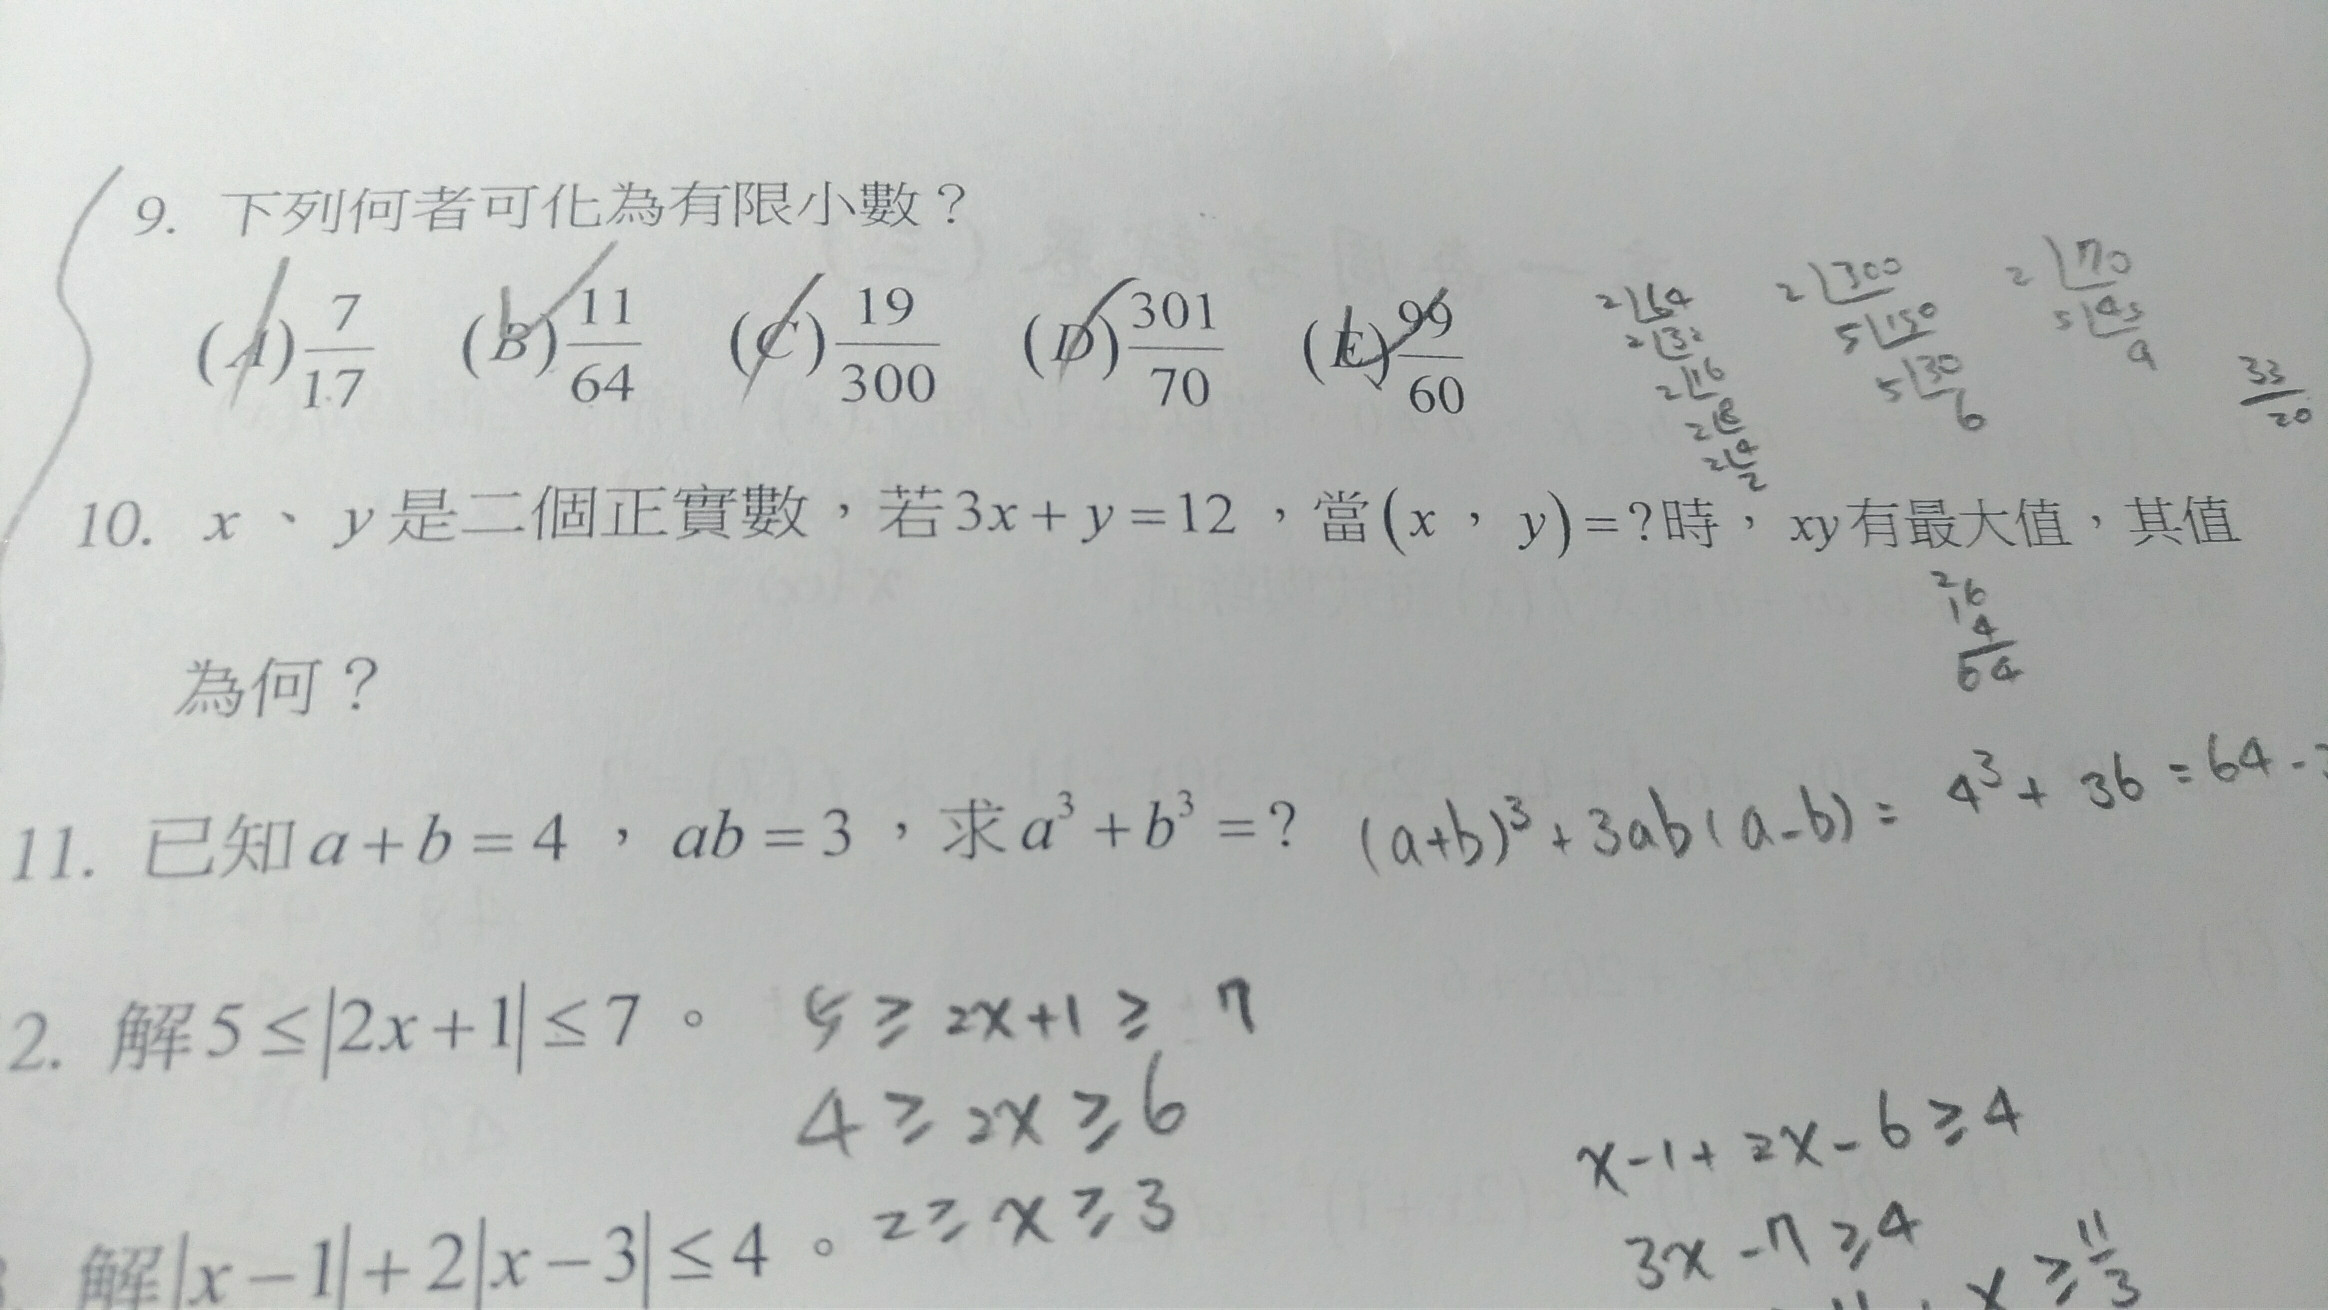 9. 下列何者可化為有限小數？
(A) 7/17 (B) 11/64 (C) 19/300 (D) 301/70 (E) 99/60
2 64
2 32
2 16
2 8
2 4
2
2 300
5 150
5 30
6
2 70
5 45
9
33/20
10. x、y是二個正實數，若3x+y=12，當(x，y)=?時，xy有最大值，其值
為何？
16
4
64
11. 已知a+b=4，ab=3，求a³+b³=? (a+b)³+3ab(a-b)= 4³+36=64-
2. 解5≤|2x+1|≤7。 5≥2x+1≥7
4≥2x≥6
2≥x≥3
解|x-1|+2|x-3|≤4。
x-1+2x-6≥4
3x-7≥4
x≥11/3